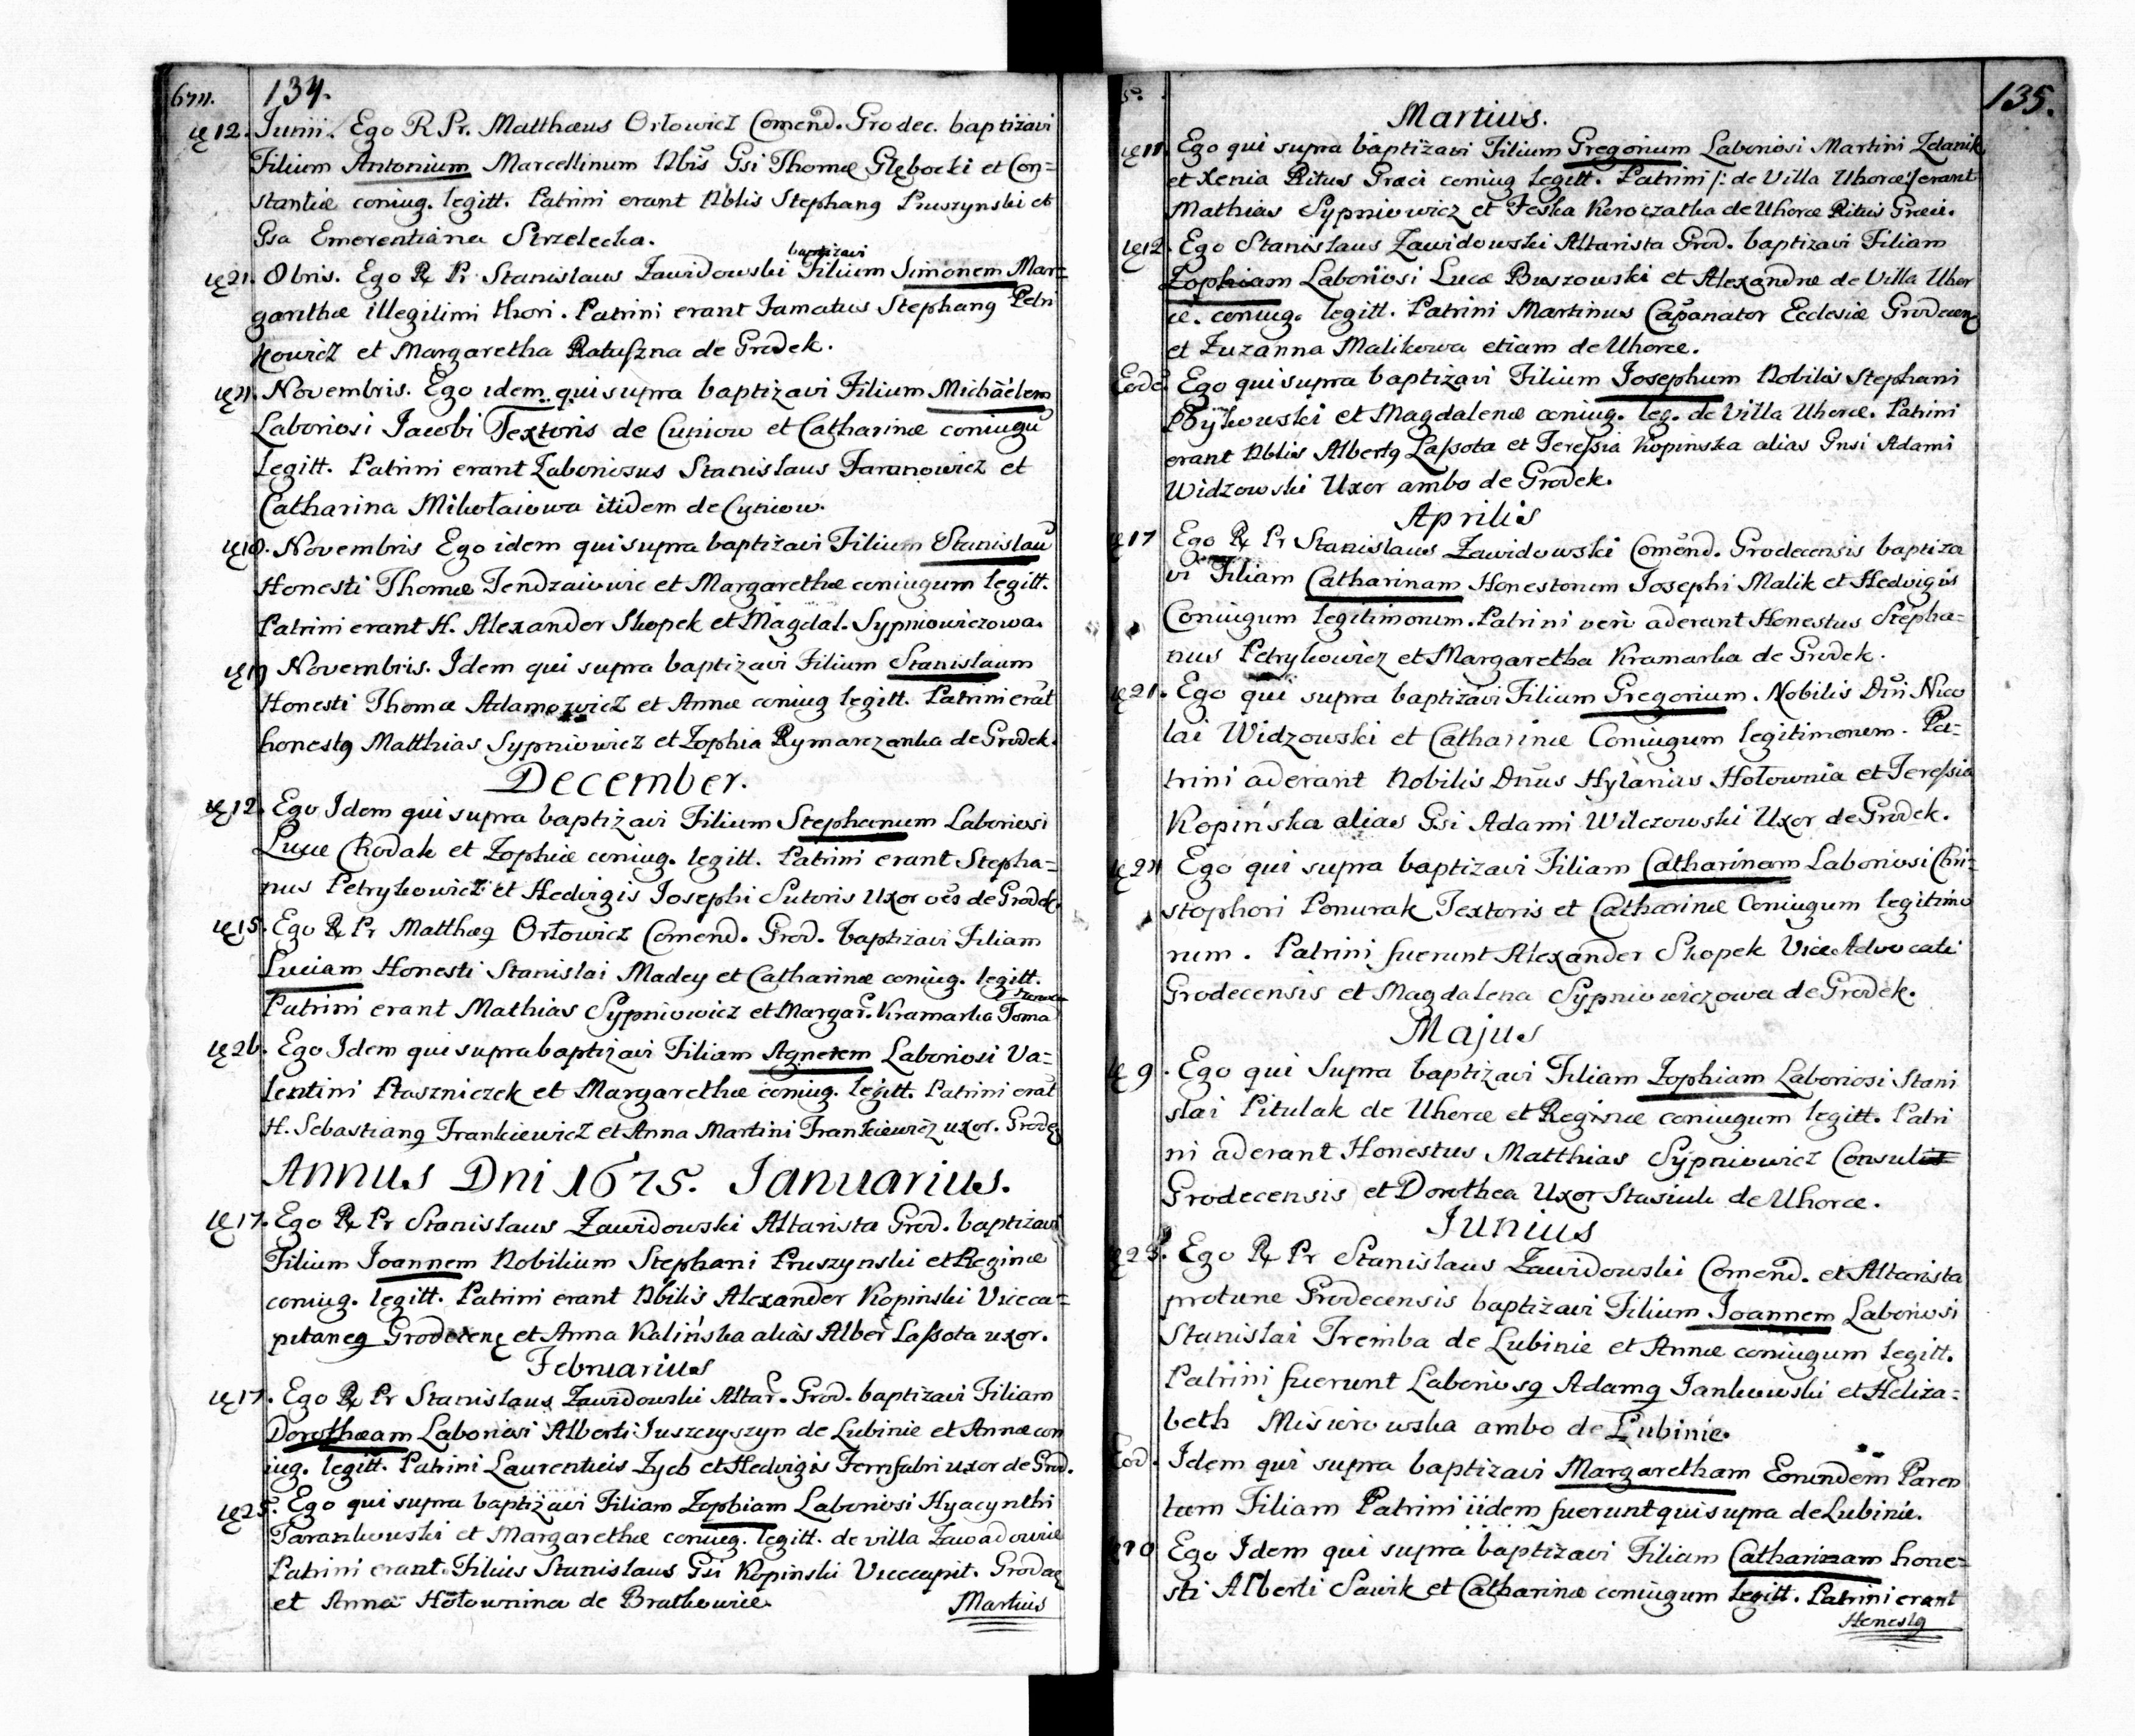 134.
ię 12. Junii. Ego R Pr. Matthæus Orłowicz Comend. Grodec. baptizavi
Filium Antonium Marcellinum Nbis Gsi Thomæ Głębocki et Con=
stantiæ coniug. legitt. Patrini erant Nblis Stephanq Pruszynski et
Gsa Emerentiana Strzelecka.
baptizavi
ię 21. 8bris. Ego R Pr Stanislaus Zawidowski Filium Simonem Mar=
garithæ illegitimi thori. Patrini erant Famatus Stephanq Petri
kowicz et Margaretha Ratuszna de Grodek.
Novembris. Ego idem qui supra baptizavi Filium Michaëlem
Laboriosi Jacobi Textoris de Cuniow et Catharinæ coniugu
legitt. Patrini erant Laboriosus Stanislaus Taranowicz et
Catharina Mikołaiowa itidem de Cuniow.
ię 18. Novembris Ego idem qui supra baptizavi Filium Stanislau
Honesti Thomæ Jendzaiowic et Margarethæ coniugum legitt.
Patrini erant H. Alexander Skopek et Magdal. Sypniowiczowa.
Novembris. Idem qui supra baptizavi Filium Stanislaum
Honesti Thomæ Adamowicz et Annæ coniug legitt. Patrini erāt
honestq Matthias Sypniowicz et Zophia Rymarczanka de Grodek.
December.
ię 12. Ego Idem qui supra baptizavi Filium Stephanum Laboriosi
Lucæ Chodak et Zophiæ coniug. legitt. Patrini erant Stepha=
nus Petrykowicz et Hedvigis Josephi Sutoris Uxor oēs de Grodek.
ię 15. Ego R Pr Matthæq Orłowicz Comend. Grod. baptizavi Filiam
Luciam Honesti Stanislai Madey et Catharinæ coniug. legitt.
Patrini erant Mathias Sypniowicz et Margar. Kramarka Toma
ię 26. Ego Idem qui supra baptizavi Filiam Agnetem Laboriosi Va=
lentini Ptaszniczek et Margarethæ coniug. legitt. Patrini erāt
H. Sebastianq Frankiewicz et Anna Martini Frankiewicz uxor. Grodę
Annus Dni 1675. Januarius.
ię 17. Ego R Pr Stanislaus Zawidowski Altarista Grod. baptizavi
Filium Joannem Nobilium Stephani Pruszynski et Reginæ
coniug. legitt. Patrini erant Nbilis Alexander Kopinski Viceca=
pitaneq Grodecenę et Anna Kalińska alias Alber Lassota uxor.
Februarius
ię 17. Ego R Pr Stanislaus Zawidowski Altar. Grod. baptizavi Filiam
Dorotheam Laboriosi Alberti Juszczyszyn de Lubinie et Annæ con
iug. legitt. Patrini Laurentius Zyeb et Hedvigis Ferrifabri uxor de Grod.
ię 25. Ego qui supra baptizavi Filiam Zophiam Laboriosi Hyacynthi
Tarankowski et Margarethæ coniug. legitt. de villa Zawadowie
Patrini erant. Filius Stanislaus Gsi Kopinski Vicecapit. Grodæ
et Anna Hołownina de Bratkowice.
Martius
135.
Martius.
Ego qui supra baptizavi Filium Gregorium Laboriosi Martini Zdanik
et Xenia Ritus Græci coniug legitt. Patrini /: de Villa Uhorce :/ erant
Mathias Sypniowicz et Feska Keroczatka de Uhorce Ritus Græci.
ię 12. Ego Stanislaus Zawidowski Altarista Grod. baptizavi Filiam
Zophiam Laboriosi Lucæ Buszowski et Alexandræ de Villa Uher
ce. coniug. legitt. Patrini Martinus Capanator Ecclesiæ Grodecen
et Zuzanna Malikowa etiam de Uhorce.
Eode. Ego qui supra baptizavi Filium Josephum Nobilis Stephani
Boykowski et Magdalenæ coniug. leg. de Villa Uhorce. Patrini
erant Nblis Albertq Lassota et Teressia Kopinska alias Gnsi Adami
Widzowski Uxor ambo de Grodek.
Aprilis
ię 17 Ego R Pr Stanislaus Zawidowski Comend. Grodecensis baptiza
vi Filiam Catharinam Honestorum Josephi Malik et Hedvigis
Coniugum legitimorum. Patrini veri aderant Honestus Stepha=
nus Petrykowicz et Margaretha Kramarka de Grodek.
ię 21. Ego qui supra baptizavi Filium Gregorium. Nobilis Dni Nico
lai Widzowski et Catharinæ Coniugum legitimorum. Pa=
trini aderant Nobilis Dnus Hylarius Hołownia et Teressia
Kopińska alias Gsi Adami Wilczowski Uxor de Grodek.
Ego qui supra baptizavi Filiam Catharinam Laboriosi Chri=
stophori Ponurak Textoris et Catharinæ Coniugum legitimo
rum. Patrini fuerunt Alexander Skopek Vice Advocati
Grodecensis et Magdalena Sypniowiczowa de Grodek.
Majus
ię 9. Ego qui Supra baptizavi Filiam Zophiam Laboriosi Stani
slai Pitulak de Uherce et Reginæ coniugum legitt. Patri
ni aderant Honestus Matthias Sypniowicz Consul
Grodecensis et Dorothea Uxor Stasiuk de Uhorce.
Junius
Ego R Pr Stanislaus Zawidowski Comend. et Altarista
protunc Grodecensis baptizavi Filium Joannem Laboriosi
Stanislai Tremba de Lubinie et Annæ coniugum legitt.
Patrini fuerunt Laboriosq Adamq Jankowski et Heliza=
beth Misiorowska ambo de Lubinie.
Eod. Idem qui supra baptizavi Margaretham Eorundem Paren
tum Filiam Patrini iidem fuerunt qui supra de Lubinie.
Ego Idem qui supra baptizavi Filiam Catharinam hone=
sti Alberti Sawik et Catharinæ coniugum legitt. Patrini erant
Honestq